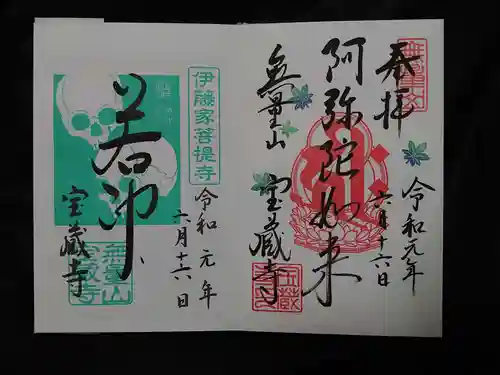 奉拝
令和元年
六月十六日
阿弥陀如来
無量山
宝蔵寺
伊藤家菩提寺
若冲
令和元年
六月十六日
宝蔵寺
無量山
宝蔵寺